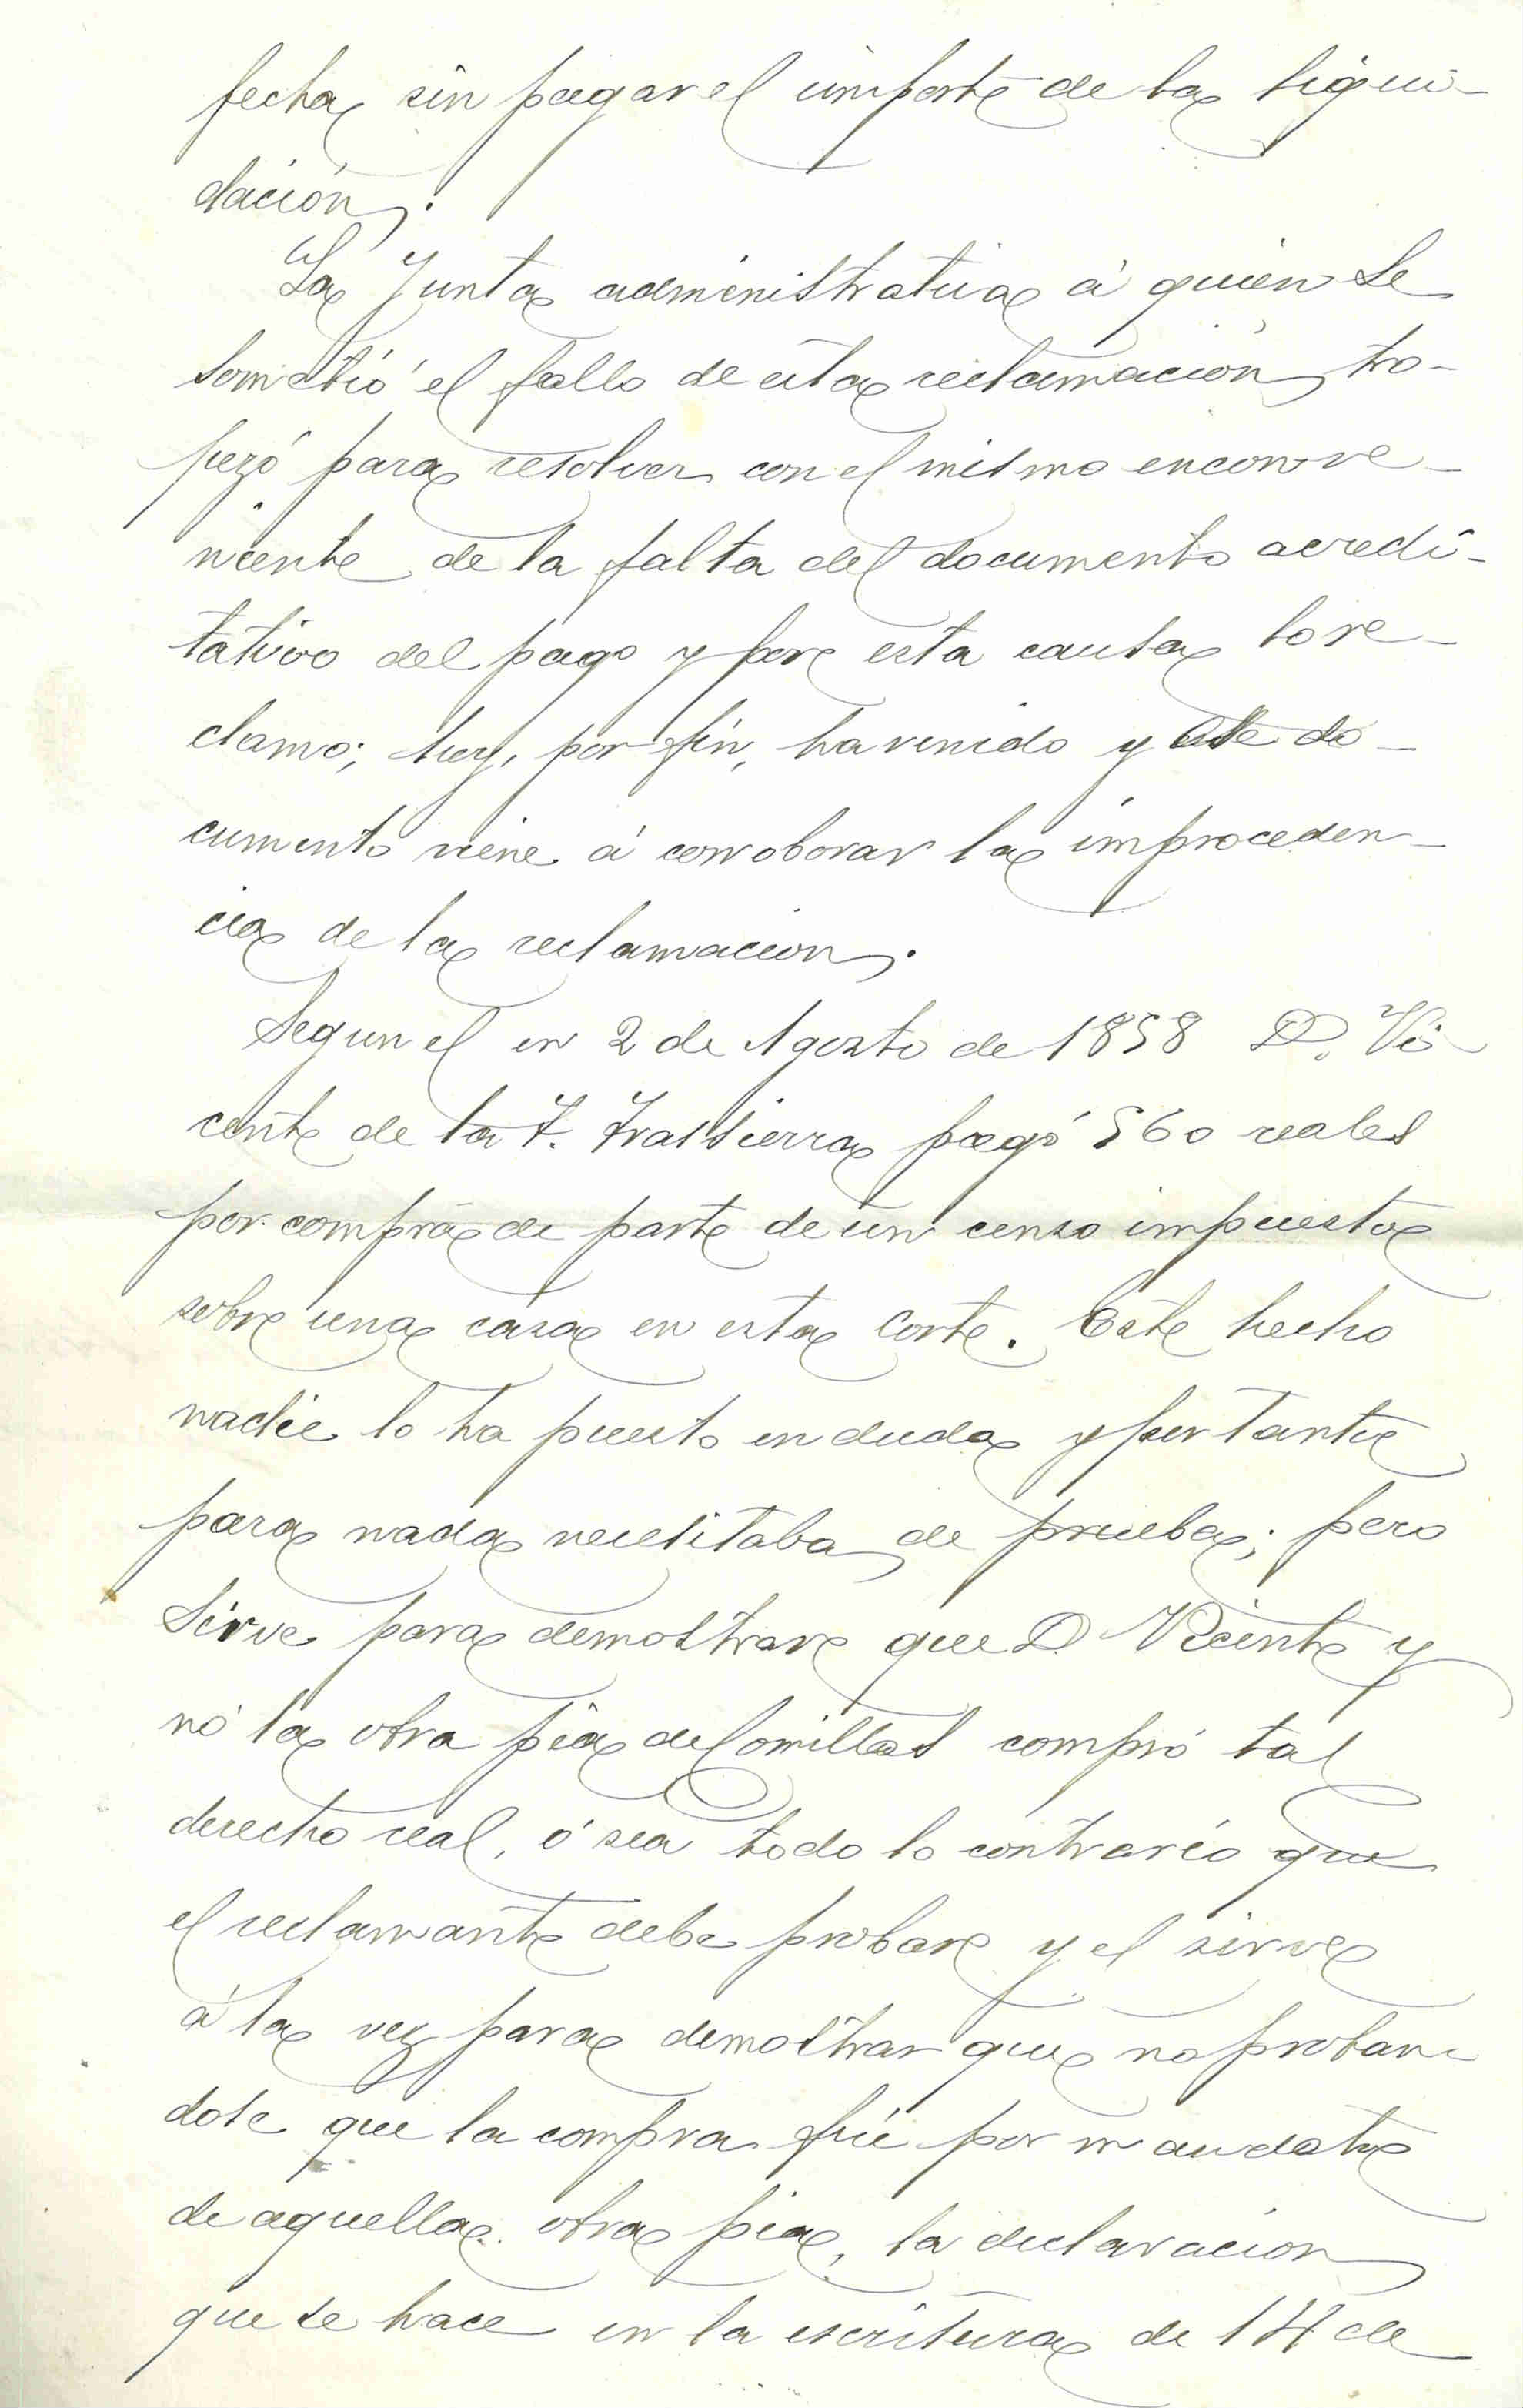 fecha, sin pagar el importe de la liqui-
dación.
La Junta administrativa á quien se
sometió el fallo de esta reclamación, tro-
pezó para resolver con el mismo enconve-
niente de la falta del documento acredi-
tativo del pago y por esta causa lo re-
clamo; hoy, por fin, ha venido y este do-
cumento viene á corroborar la improceden-
cia de la reclamacion.
Segun el en 2 de Agosto de 1858 D. Vi-
cente de la T. Trassierra pagó 560 reales
por compra de parte de un censo impuesto
sobre una casa en esta Corte. Este hecho
nadie lo ha puesto en duda y por tanto
para nada necesitaba de prueba; pero
sirve para demostrar que D. Vicente y
nó la obra pia de Comillas compró tal
derecho real, ó sea todo lo contrario que
el reclamante debe probar y el sirve
á la vez para demostrar que no proban-
dose que la compra fué por mandato
de aquella obra pia, la declaracion
que se hace en la escritura de 14 de